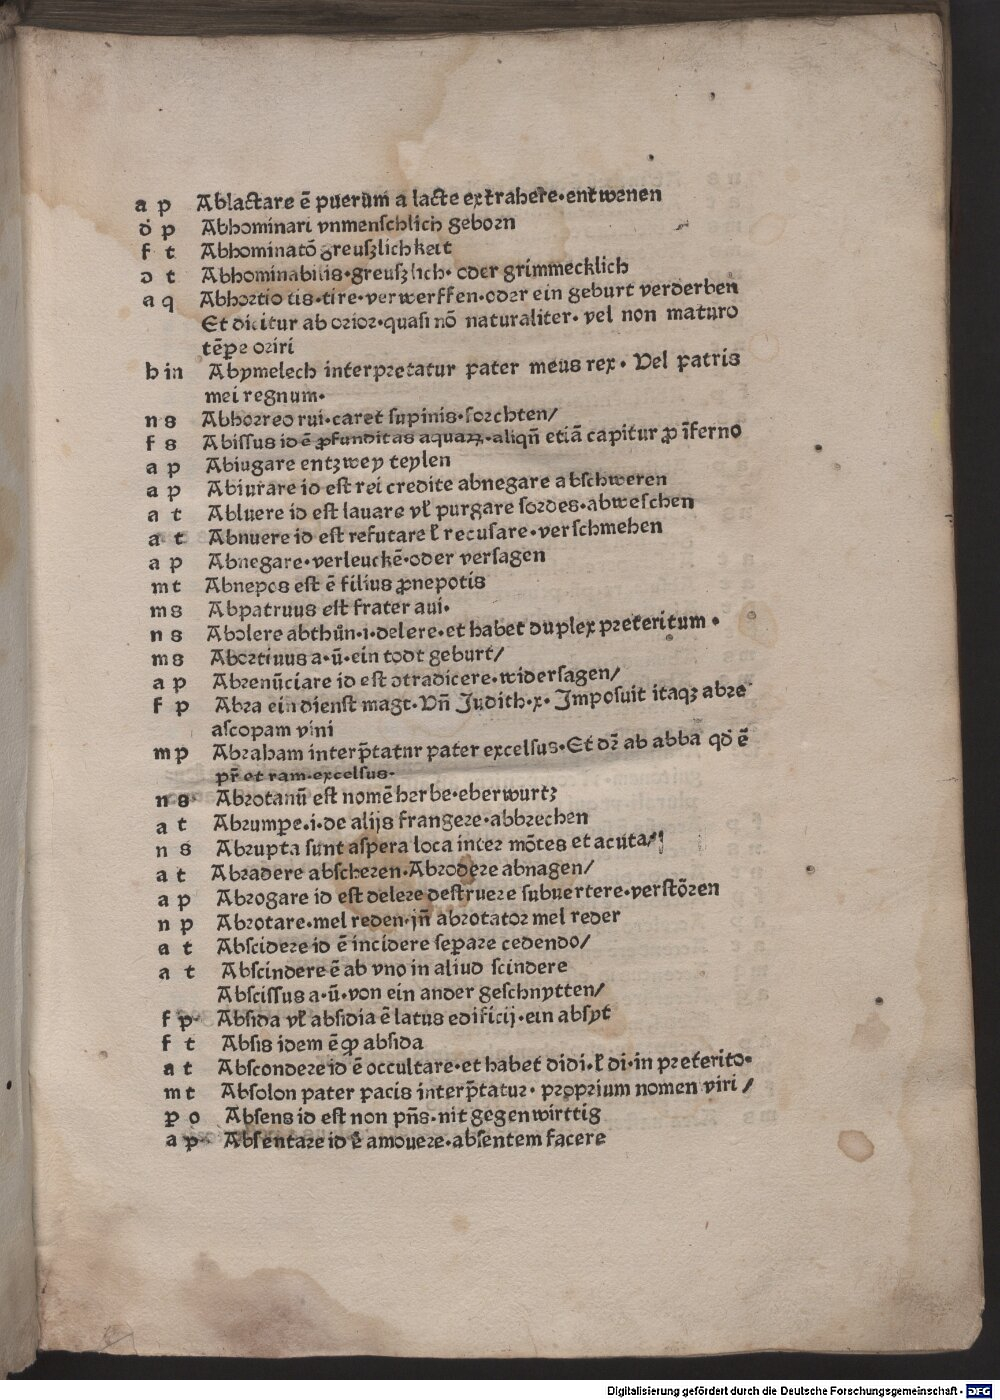 a p Ablactare ē puerum a lacte extrahere·entwenen
d p Abhominari vnmenschlich geborn
f t Abhominatō greuszlichkeit
ɔ t Abhominabilis·greuszlich·oder grimmecklich
a q Abhortio tis·tire·verwerffen·oder ein geburt verderben
Et dicitur ab orior·quasi nō naturaliter·vel non maturo
tēpe oriri
h in Abymelech interpretatur pater meus rex· Vel patris
mei regnum·
n s Abhorreo rui·caret supinis·forchten/
f s Abissus id ē ꝓfunditas aquaꝝ·aliqn̄ etiā capitur ꝓ īferno
a p Abiugare entzwey teylen
a p Abiurare id est rei credite abnegare abschweren
a t Abluere id est lauare vł purgare sordes·abweschen
a t Abnuere id est refutare ł recusare·verschmehen
a p Abnegare·verleuckē·oder versagen
m t Abnepos est ē filius ꝓnepotis
m s Abpatruus est frater aui·
n s Abolere abthůn·i·delere·et habet duplex preteritum·
m s Abortiuus a·ū·ein todt geburt/
a p Abrenūciare id est ɔtradicere·widersagen/
f p Abra ein dienst magt·Vn̄ Judith·x·Imposuit itaqꝫ abre
ascopam vini
m p Abraham interp̄tatur pater excelsus·Et dꝛ̄ ab abba qđ ē
pr̄ et ram·excelsus·
n s Abrotanū est nomē herbe·eberwurtz
a t Abrumpe·i·de alijs frangere·abbrechen
n s Abrupta sunt aspera loca inter mōtes et acuta/
a t Abradere abscheren·Abrodere abnagen/
a p Abrogare id est delere destruere subuertere·verstören
n p Abrotare·mel reden·jn̄ abrotator mel reder
a t Abscidere id ē incidere separe cedendo/
a t Abscindere ē ab vno in aliud scindere
Abscissus a·ū·von ein ander geschnytten/
f p Absida vł absidia ē latus edificij·ein absyt
f t Absis idem ē ꝙ absida
a t Abscondere id ē occultare·et habet didi·ł di·in preterito·
m t Absolon pater pacis interp̄tatur·proprium nomen viri/
p o Absens id est non pn̄s·nit gegenwirttig
a p Absentare id ē amouere·absentem facere
Digitalisierung gefördert durch die Deutsche Forschungsgemeinschaft · DFG